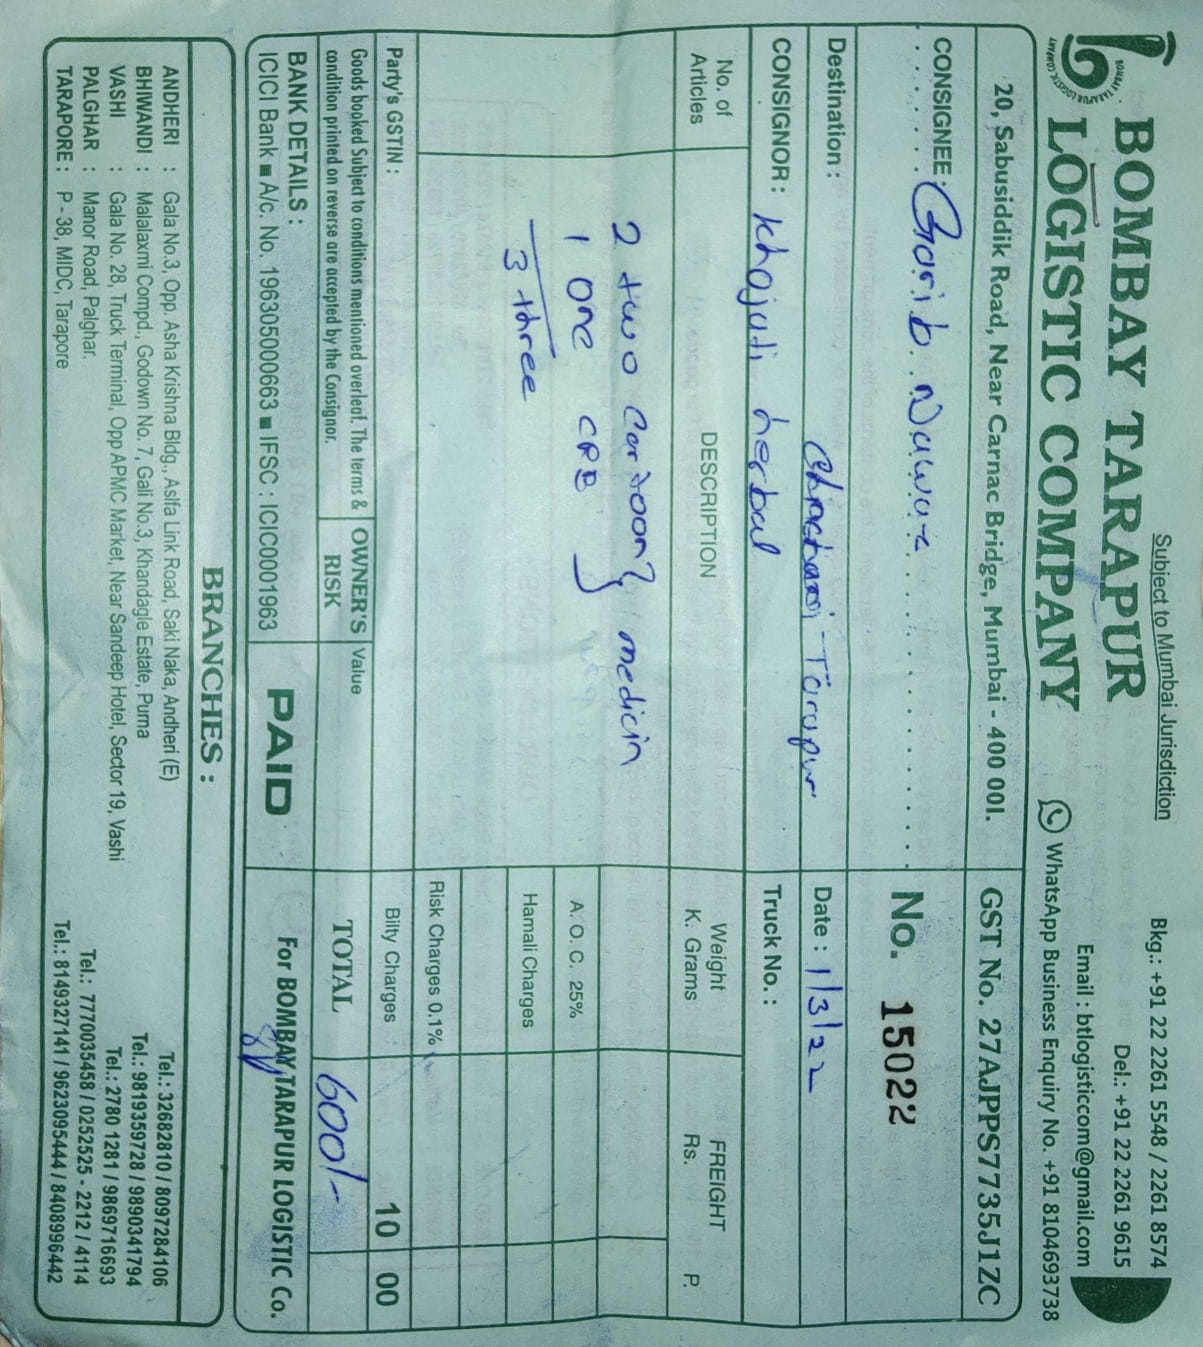 Subject to Mumbai Jurisdiction
Bkg.: +91 22 2261 5548 / 2261 8574
BOMBAY TARAPUR
Del.: +91 22 2261 9615
LOGISTIC COMPANY
Email : btlogisticcom@gmail.com
BOMBAY TARAPUR LOGISTIC COMPANY
WhatsApp Business Enquiry No. +91 8104693738
20, Sabusiddik Road, Near Carnac Bridge, Mumbai - 400 001.
GST No. 27AJPPS7735J1ZC
CONSIGNEE: Garib Nawaz
No. 15022
Destination : Chinchani - Tarapur
Date : 1/3/22
CONSIGNOR : Khojati herbal
Truck No. :
No. of Articles
DESCRIPTION
Weight K. Grams
FREIGHT Rs. P.
2 two Cartoon } medicin
1 one CRB
3 three
A. O. C. 25%
Hamali Charges
Risk Charges 0.1%
Party's GSTIN :
Bilty Charges 10 00
Goods booked Subject to conditions mentioned overleaf. The terms &
condition printed on reverse are accepted by the Consignor.
OWNER'S RISK
Value
TOTAL 600/-
BANK DETAILS :
ICICI Bank ■ A/c. No. 196305000663 ■ IFSC : ICIC0001963
PAID
For BOMBAY TARAPUR LOGISTIC Co.
BRANCHES :
ANDHERI : Gala No.3, Opp. Asha Krishna Bldg., Aslfa Link Road, Saki Naka, Andheri (E) Tel.: 32682810 / 8097284106
BHIWANDI : Malalaxmi Compd., Godown No. 7, Gali No.3, Khandagle Estate, Purna Tel.: 9819359728 / 9890341794
VASHI : Gala No. 28, Truck Terminal, Opp APMC Market, Near Sandeep Hotel, Sector 19, Vashi Tel.: 2780 1281 / 9869716693
PALGHAR : Manor Road, Palghar. Tel.: 7770035458 / 0252525 - 2212 / 4114
TARAPORE : P - 38, MIDC, Tarapore Tel.: 8149327141 / 9623095444 / 8408996442